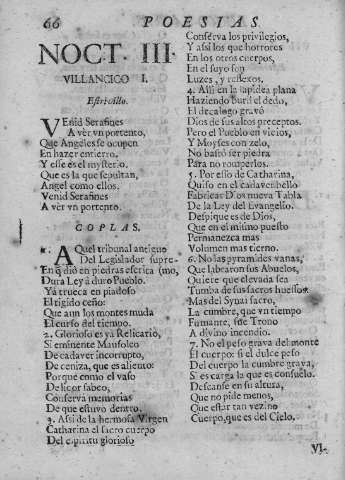 66 POESIAS
NOCT. III.
VILLANCICO I.
Estrivillo.
VEnid Serafines
A vèr vn portento,
Que Angeles se ocupen
En hazer entierro.
Y esse es el mysterio
Que es la que sepultan,
Angel como ellos.
Venid Serafines
A vèr vn portento.
COPLAS.
1. AQuel tribunal antiguo
Del Legislador supre-
En q̃ diò en piedras escrita (mo,
Dura Ley à duro Pueblo.
Yà trueca en piadoso
El rigido ceño:
Que aun los montes muda
El curso del tiempo.
2. Glorioso es ya Relicario,
Si eminente Mausoleo
De cadaver incorrupto,
De ceniza, que es aliento:
Porque como el vaso
De licor sabeo,
Conserva memorias
De que estuvo dentro.
3. Assi de la hermosa Virgen
Catharina el sacro cuerpo
Del espiritu glorioso
Conserva los privilegios,
Y assi los que horrores
En los otros cuerpos,
En el suyo son
Luzes, y reflexos.
4. Assi en la lapidea plana
Haziendo buril el dedo,
El decalogo gravò
Dios de sus altos preceptos.
Pero el Pueblo en vicios,
Y Moyses con zelo,
No bastò ser piedra
Para no romperlos.
5. Por esso de Catharina,
Quiso en el cadaver bello
Fabricar Dios nueva Tabla
De la Ley del Evangelio.
Despique es de Dios,
Que en el mismo puesto
Permanezca mas
Volumen mas tierno.
6. No las pyramides vanas,
Que labraron sus Abuelos,
Quiere que elevada sea
Tumba de sus sacros huessos.
Mas del Synai sacro,
La cumbre, que vn tiempo
Fumante, fue Trono
A divino incendio.
7. No el peso grava del monte
El cuerpo: si el dulce peso
Del cuerpo la cumbre grava,
Si es carga la que es consuelo.
Descanse en su altura,
Que no pide menos,
Que estàr tan vezino
Cuerpo, que es del Cielo.
VI-